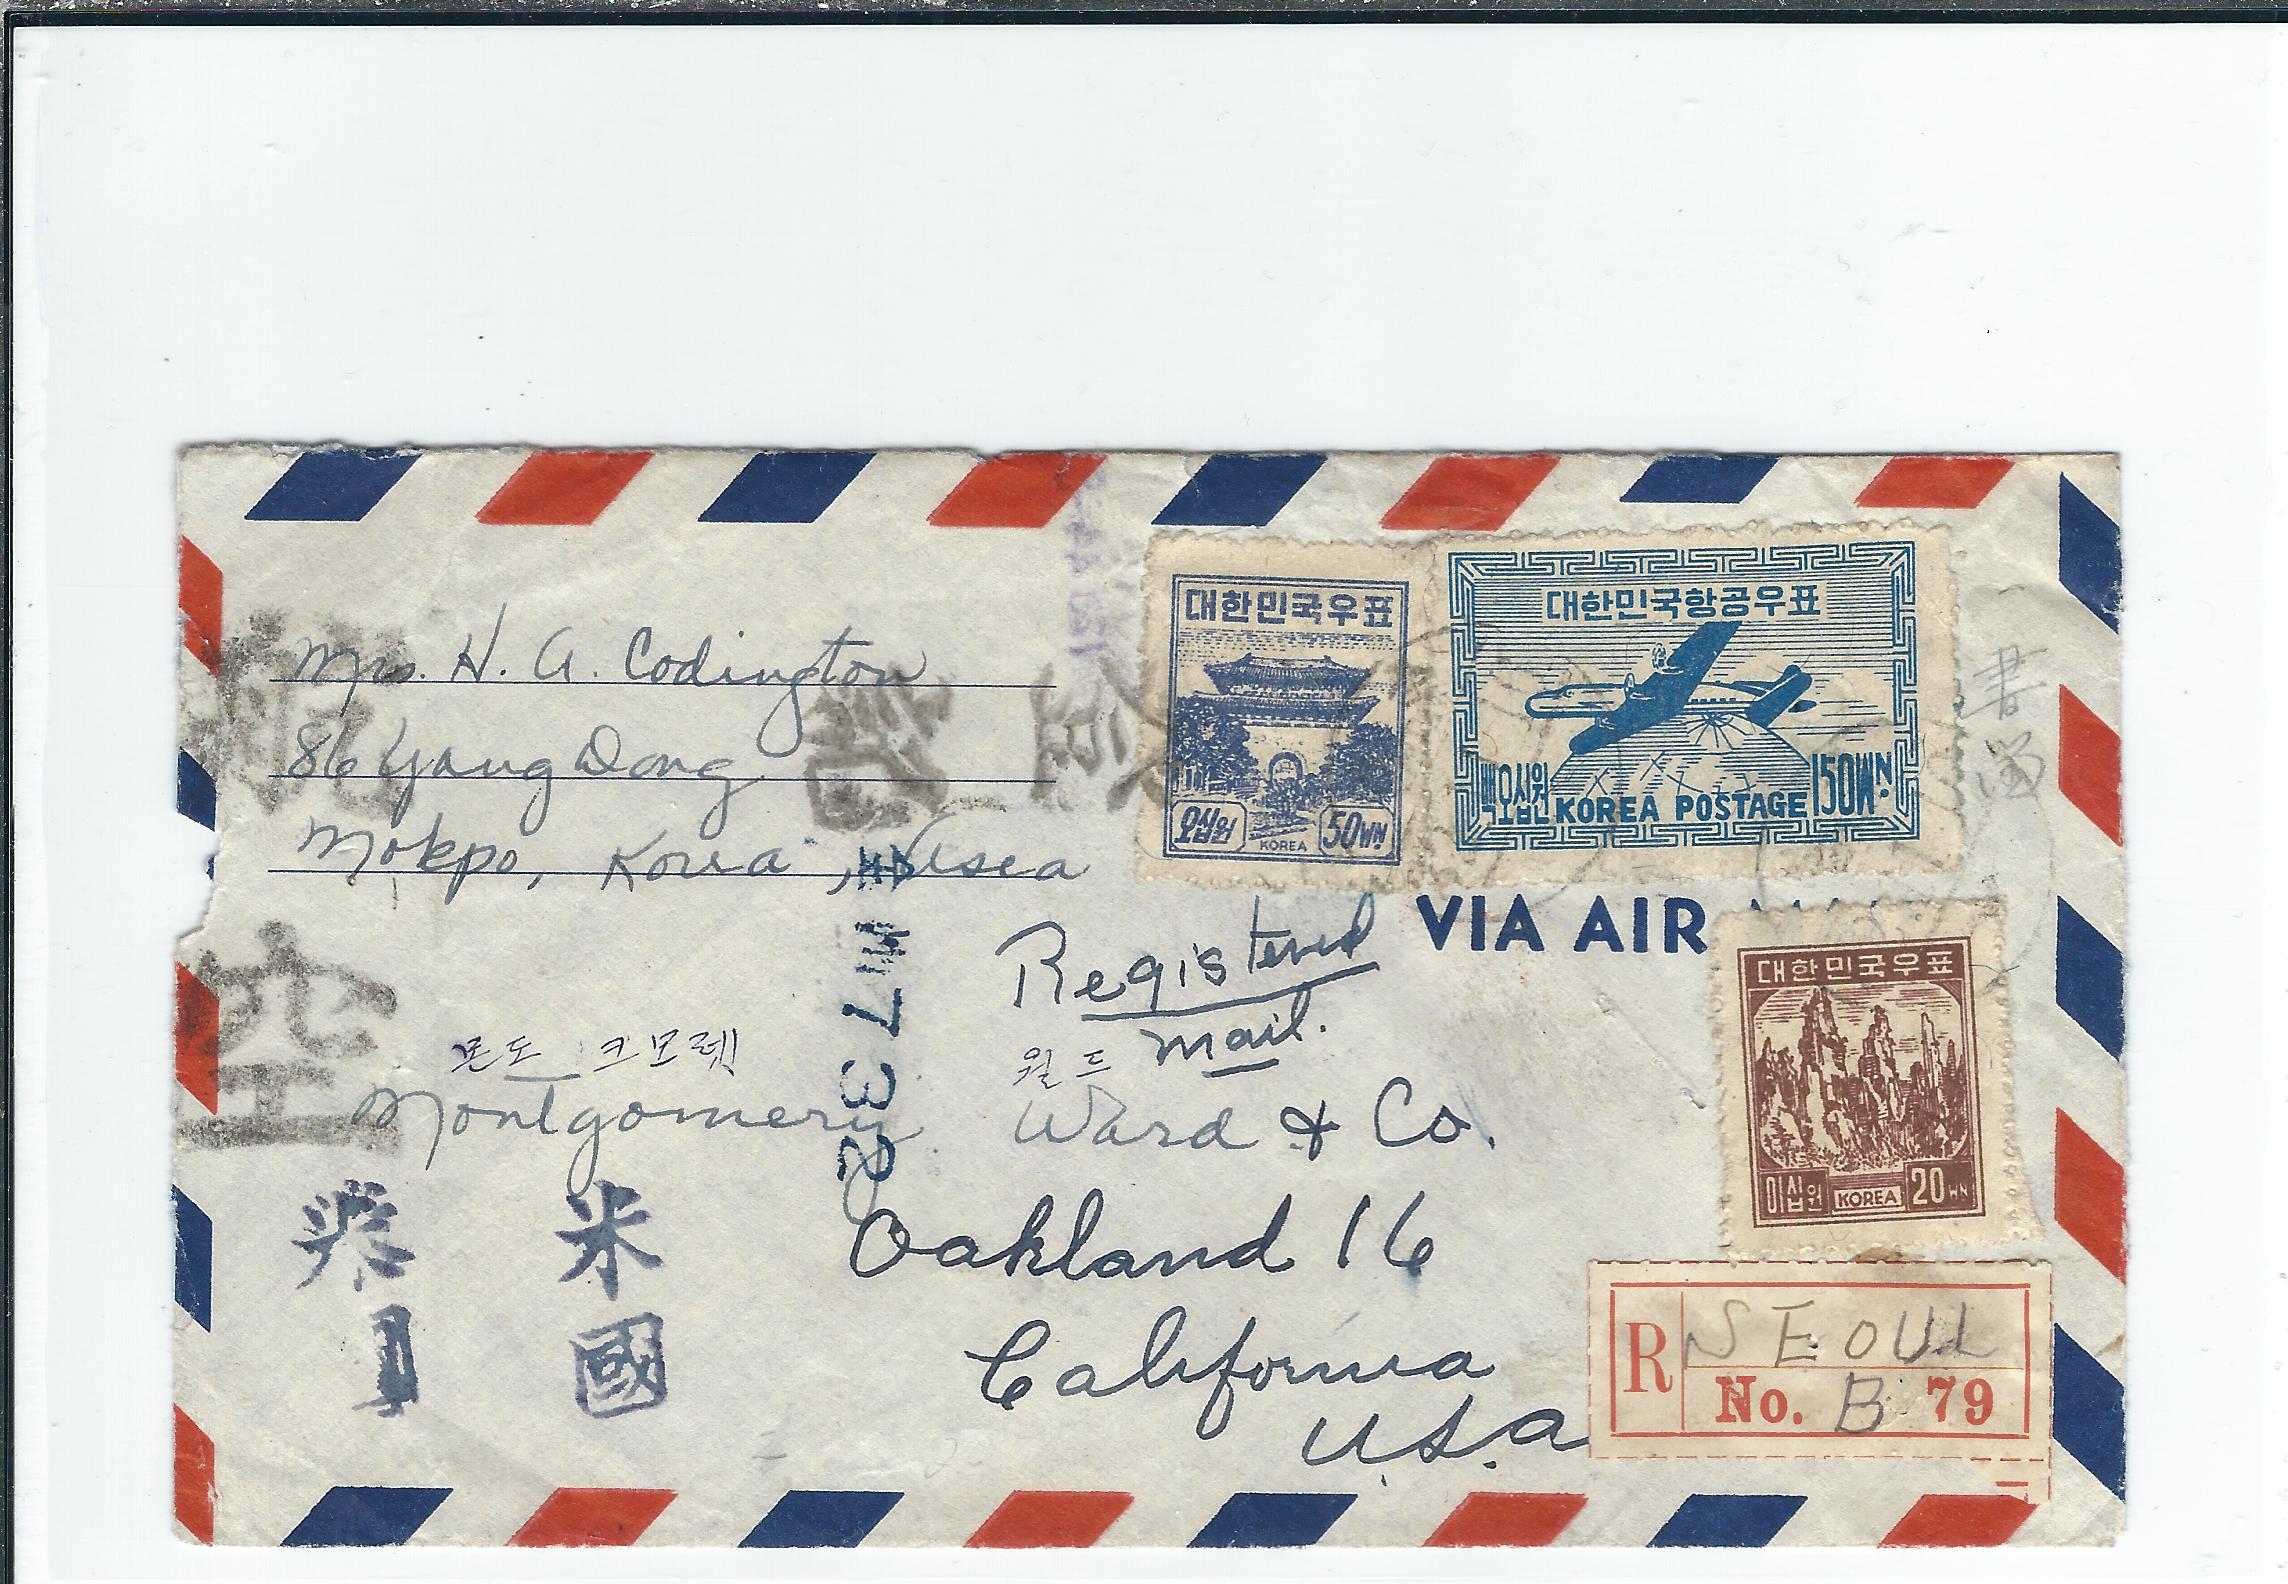 Mrs. H. A. Codington
86 Yang Dong
Mokpo, Korea, Asea
대한민국우표
오십원 KOREA 50WN
대한민국항공우표
백오십원 KOREA POSTAGE 150WN
VIA AIR
대한민국우표
이십원 KOREA 20WN
Registered
Mail.
월드
Montgomery Ward & Co.
Oakland 16
California
U.S.A
732
空
米國
R SEOUL
No. B 79